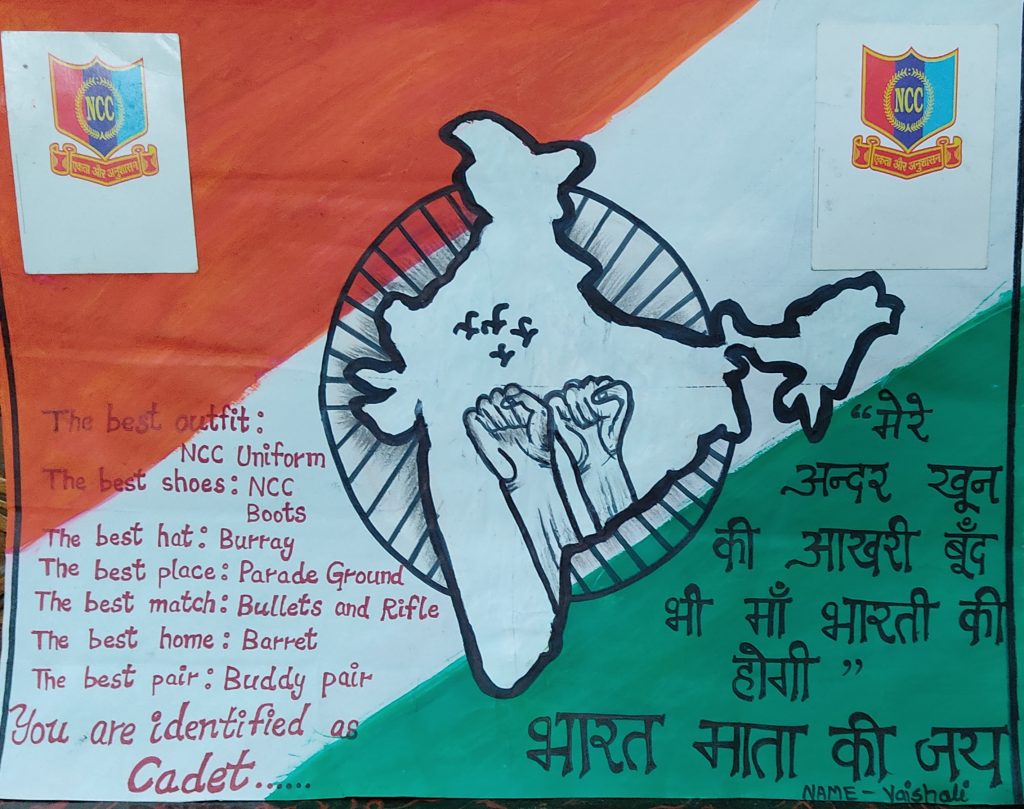 NCC
एकता और अनुशासन
NCC
एकता और अनुशासन
The best outfit:
NCC Uniform
The best shoes: NCC
Boots
The best hat: Burray
The best place: Parade Ground
The best match: Bullets and Rifle
The best home: Barret
The best pair: Buddy pair
You are identified as
Cadet......
“मेरे
अन्दर खून
की आखरी बूँद
भी माँ भारती की
होगी”
भारत माता की जय
NAME - Vaishali